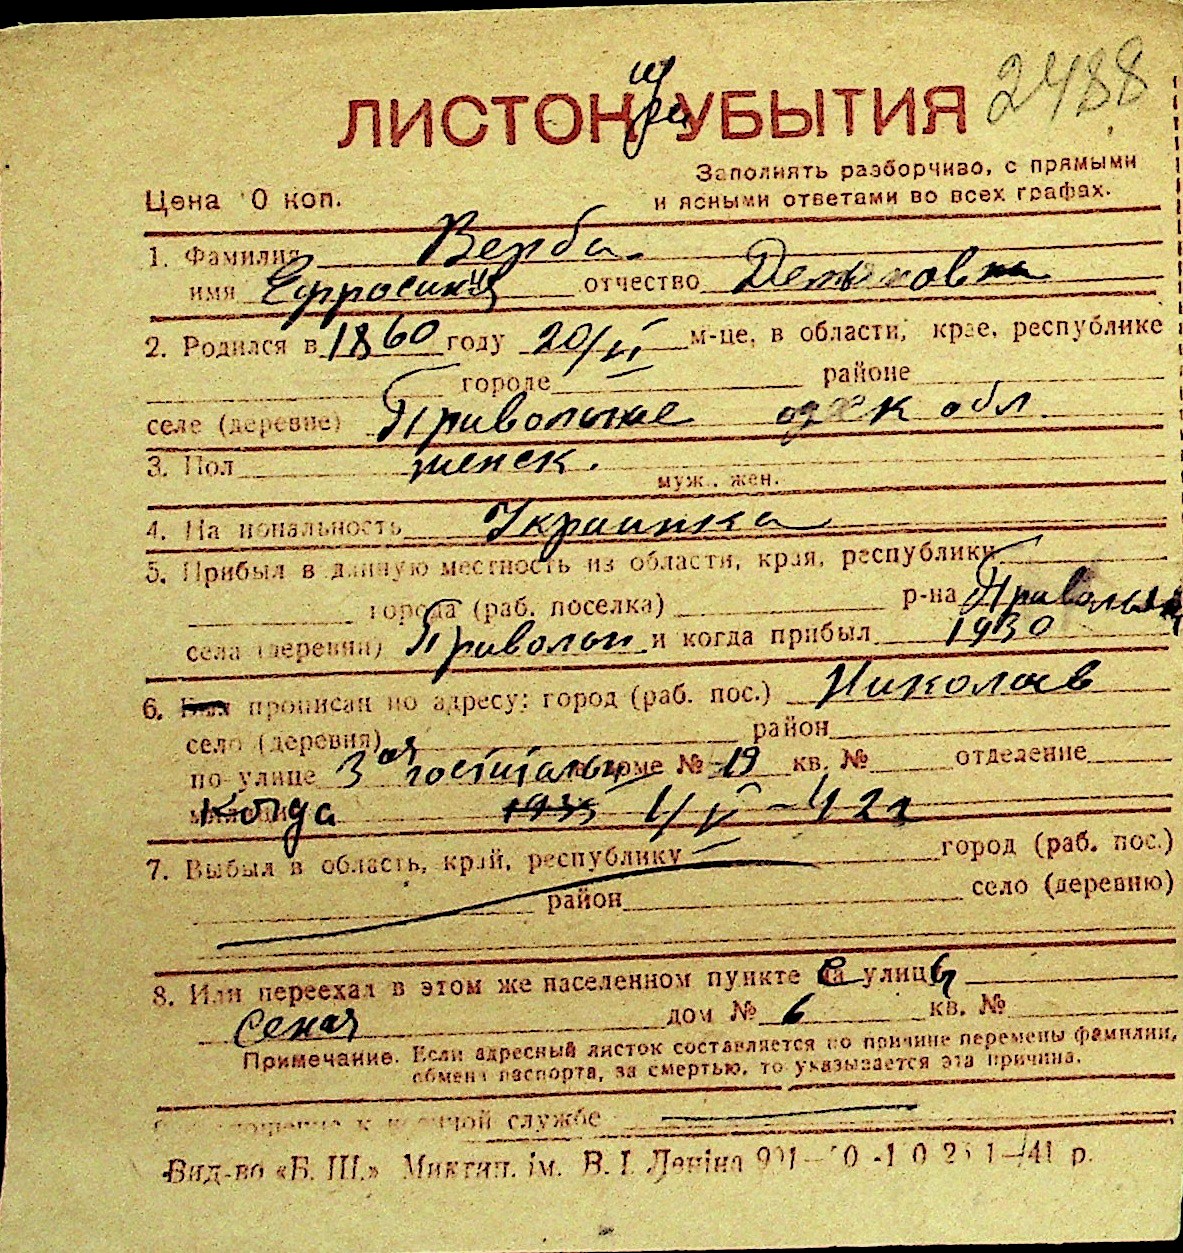 2488
ЛИСТОК УБЫТИЯ
при
Заполнять разборчиво, с прямыми
Цена 10 коп.
и ясными ответами во всех графах.
1. Фамилия Верба
имя Ефросиния отчество
2. Родился в 1860 году 20/VI м-це, в области, крае, республике
городе районе
селе (деревне) Привольне одеск обл
3. Пол женск.
муж., жен.
4. Национальность Украинка
5. Прибыл в данную местность из области, края, республики
города (раб. поселка) р-на
села (деревни) Привольн и когда прибыл 1930
6. Был прописан по адресу: город (раб. пос.) Николаев
село (деревня) район
по улице 3ая госпитальн доме № 19 кв. № отделение
милиции Когда 1935 4/V-42г
7. Выбыл в область, край, республику город (раб. пос.)
район село (деревню)
8. Или переехал в этом же населенном пункте на улицу
Сеная дом № 6 кв. №
Примечание. Если адресный листок составляется по причине перемены фамилии,
обмена паспорта, за смертью, то указывается эта причина.
отношение к военной службе
Вид-во «Б. Ш.» Миктип. ім. В. І. Леніна